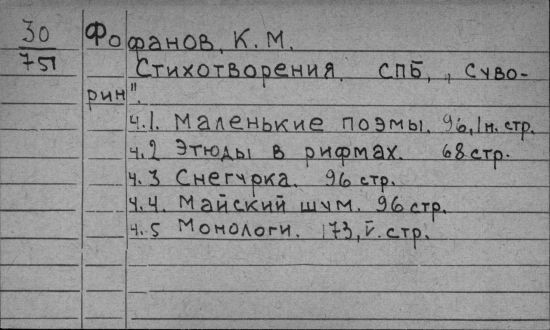 30
751
Фофанов, К. М.
Стихотворения. СПБ, „Суво-
рин".
ч.1. Маленькие поэмы. 96, 1н. стр.
ч.2 Этюды в рифмах. 68 стр.
ч.3 Снегурка. 96 стр.
ч.4. Майский шум. 96 стр.
ч.5 Монологи. 173, V. стр.